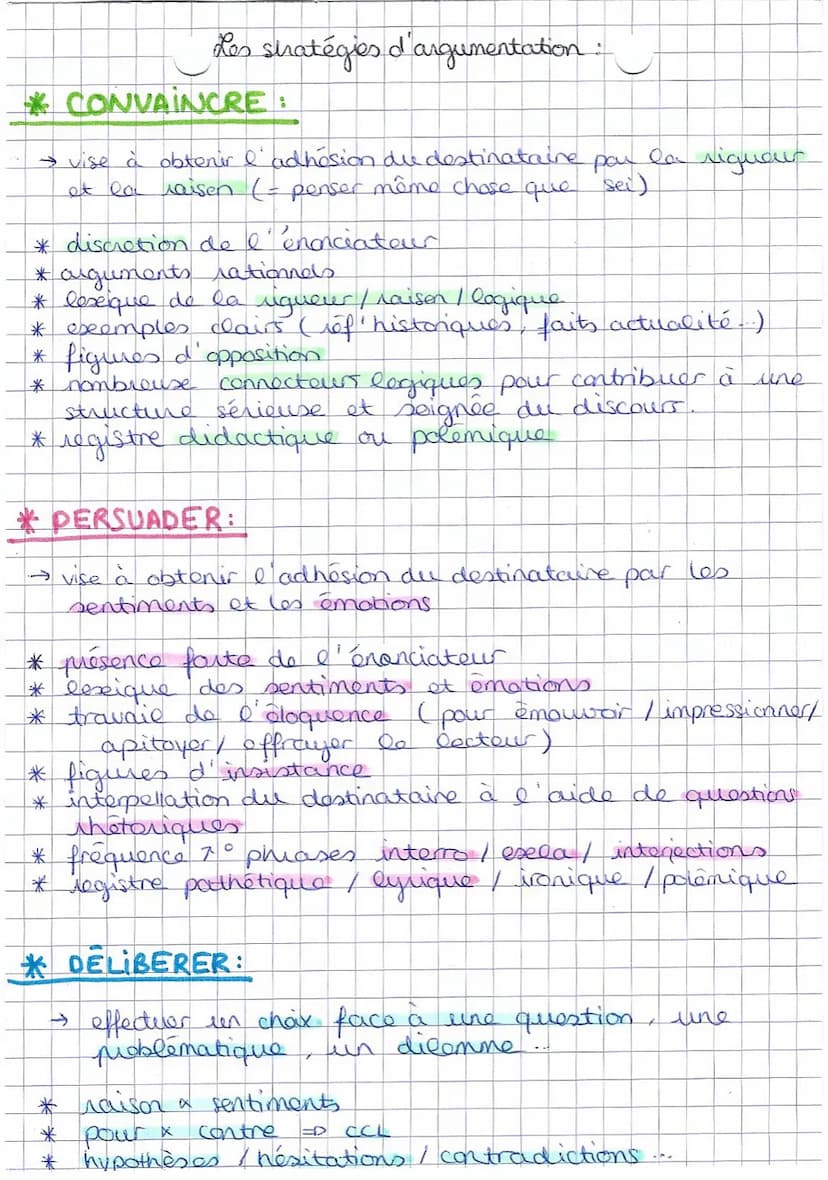 Les stratégies d'argumentation :
* CONVAINCRE :
→ vise à obtenir l'adhésion du destinataire par la rigueur
et la raison (= penser même chose que soi)
* discrétion de l'énonciateur
* arguments rationnels
* lexique de la rigueur / raison / logique
* exemples clairs (réf' historiques, faits actualité...)
* figures d'opposition
* nombreuse connecteurs logiques pour contribuer à une
structure sérieuse et soignée du discours.
* registre didactique ou polémique
* PERSUADER :
→ vise à obtenir l'adhésion du destinataire par les
sentiments et les émotions
* présence forte de l'énonciateur
* lexique des sentiments et émotions
* travaie de l'éloquence (pour émouvoir / impressionner /
apitoyer / effrayer le lecteur)
* figures d'insistance
* interpellation du destinataire à l'aide de questions
rhétoriques
* fréquence phrases interro / excla / interjections
* registre pathétique / lyrique / ironique / polémique
* DÉLIBERER :
→ effectuer un choix face à une question, une
problématique, un dilemme...
* raison x sentiments
* pour x contre => CCL
* hypothèses / hésitations / contradictions ...